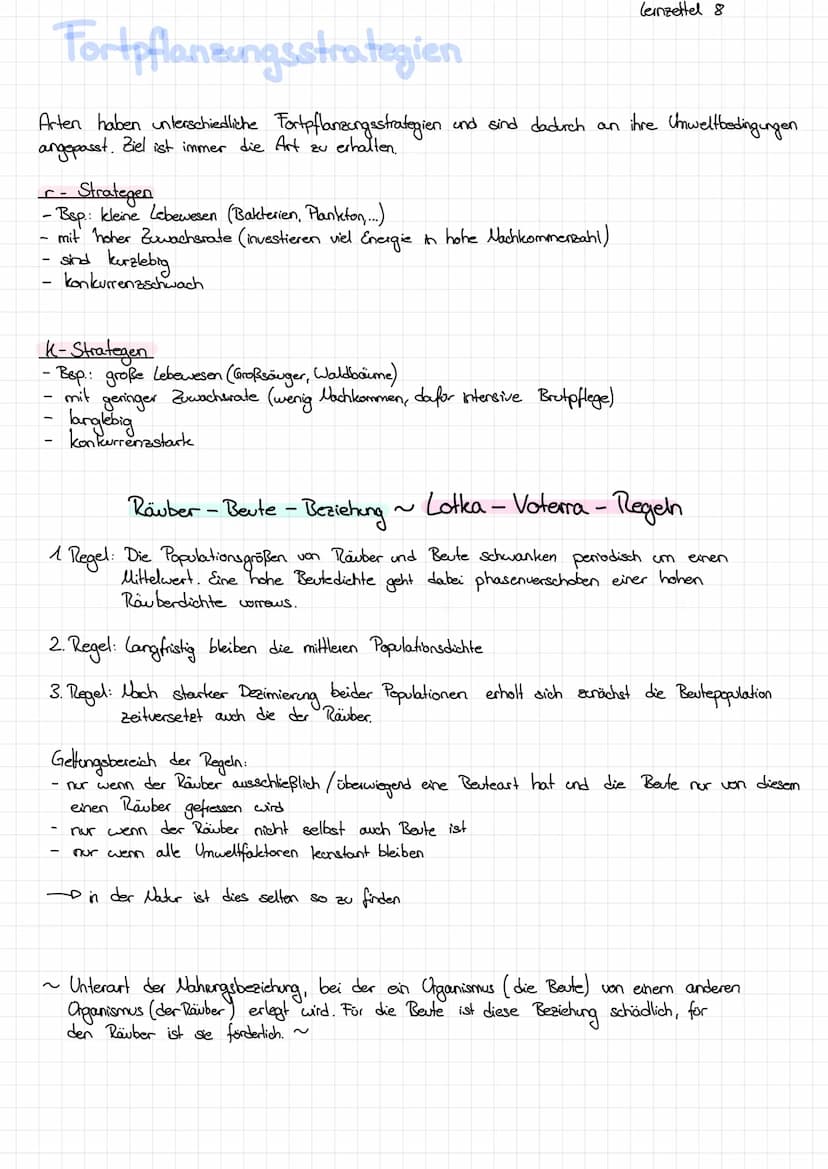 Lernzettel 8
Fortpflanzungsstrategien
Arten haben unterschiedliche Fortpflanzungsstrategien und sind dadurch an ihre Umweltbedingungen
angepasst. Ziel ist immer die Art zu erhalten.
r - Strategen
- Bsp.: kleine Lebewesen (Bakterien, Plankton,...)
- mit hoher Zuwachsrate (investieren viel Energie in hohe Nachkommenzahl)
- sind kurzlebig
- konkurrenzschwach
K - Strategen
- Bsp.: große Lebewesen (Großsäuger, Waldbäume)
- mit geringer Zuwachsrate (wenig Nachkommen, dafür intensive Brutpflege)
- langlebig
- konkurrenzstark
Räuber - Beute - Beziehung ~ Lotka - Voterra - Regeln
1 Regel: Die Populationsgrößen von Räuber und Beute schwanken periodisch um einen
Mittelwert. Eine hohe Beutedichte geht dabei phasenverschoben einer hohen
Räuberdichte vorraus.
2. Regel: Langfristig bleiben die mittleren Populationsdichte
3. Regel: Nach starker Dezimierung beider Populationen erholt sich zunächst die Beutepopulation
zeitversetzt auch die der Räuber.
Geltungsbereich der Regeln:
- nur wenn der Räuber ausschließlich / überwiegend eine Beuteart hat und die Beute nur von diesem
einen Räuber gefressen wird
- nur wenn der Räuber nicht selbst auch Beute ist
- nur wenn alle Umweltfaktoren konstant bleiben
→ in der Natur ist dies selten so zu finden
~ Unterart der Nahrungsbeziehung, bei der ein Organismus (die Beute) von einem anderen
Organismus (der Räuber) erlegt wird. Für die Beute ist diese Beziehung schädlich, für
den Räuber ist sie förderlich. ~